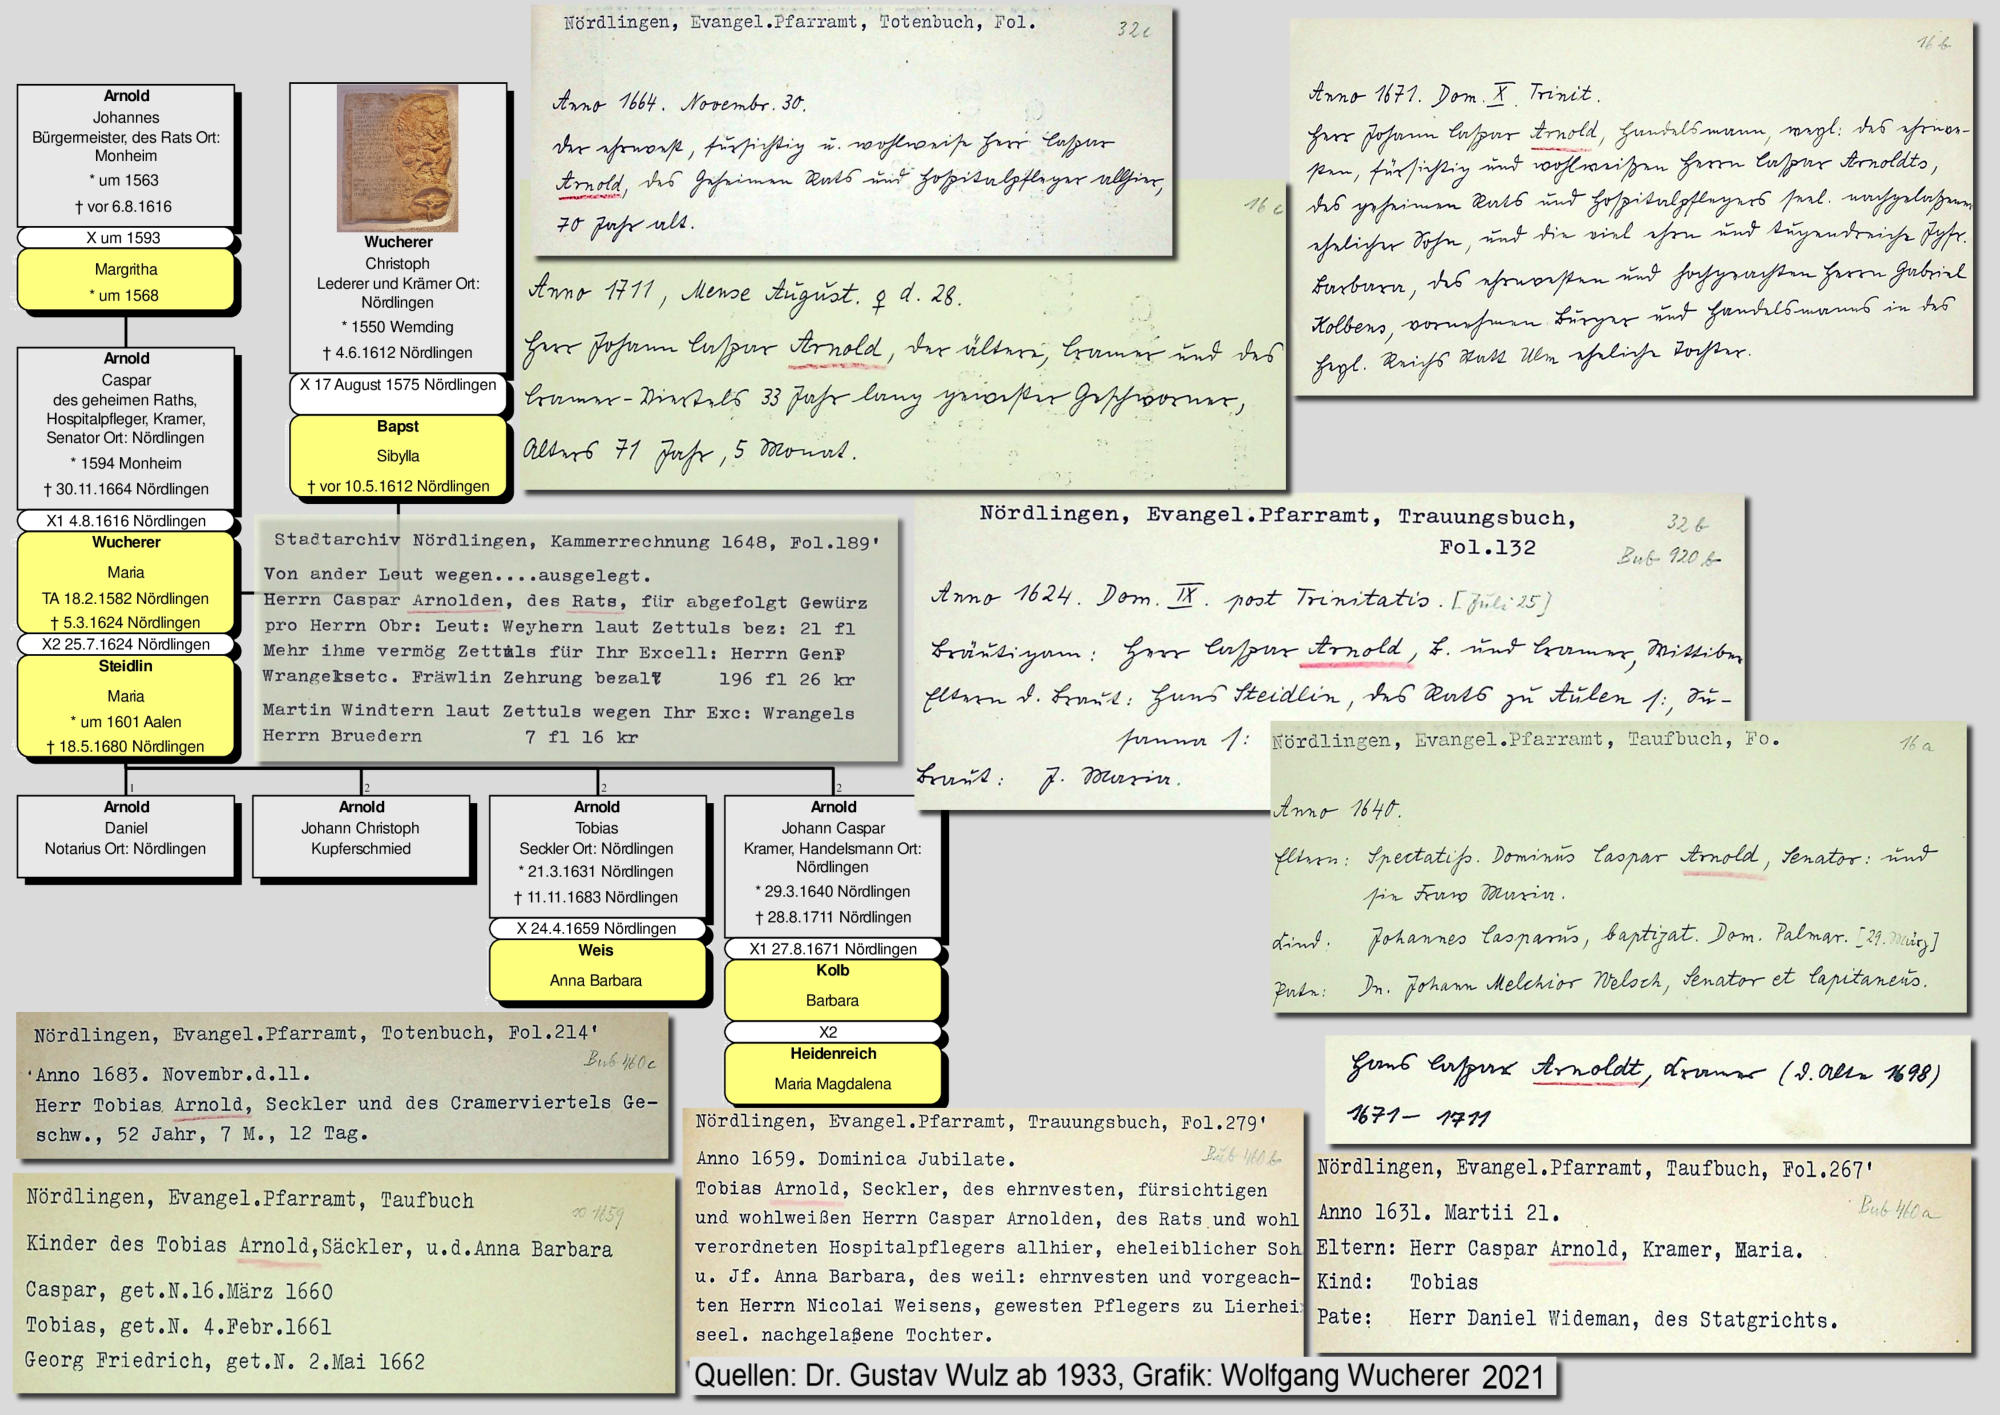 Arnold
Johannes
Bürgermeister, des Rats Ort:
Monheim
* um 1563
† vor 6.8.1616
X um 1593
Margritha
* um 1568
Arnold
Caspar
des geheimen Raths,
Hospitalpfleger, Kramer,
Senator Ort: Nördlingen
* 1594 Monheim
† 30.11.1664 Nördlingen
X1 4.8.1616 Nördlingen
Wucherer
Maria
TA 18.2.1582 Nördlingen
† 5.3.1624 Nördlingen
X2 25.7.1624 Nördlingen
Steidlin
Maria
* um 1601 Aalen
† 18.5.1680 Nördlingen
Wucherer
Christoph
Lederer und Krämer Ort:
Nördlingen
* 1550 Wemding
† 4.6.1612 Nördlingen
X 17 August 1575 Nördlingen
Bapst
Sibylla
† vor 10.5.1612 Nördlingen
Nördlingen, Evangel.Pfarramt, Totenbuch, Fol.
32c
Anno 1664. Novembr. 30.
der ehrnvest, fürsichtig u. wohlweise Herr Caspar
Arnold, des Geheimen Rats und Hospitalpfleger allhier,
70 Jahr alt.
16 c
Anno 1711, Mense August. ♀ d. 28.
Herr Johann Caspar Arnold, der ältere, Cramer und des
Cramer-Viertels 33 Jahr lang gewester Geschworner,
Alters 71 Jahr, 5 Monat.
16 b
Anno 1671. Dom. X. Trinit.
Herr Johann Caspar Arnold, Handelsmann, weyl: des ehrnve-
sten, fürsichtig und wohlweißen Herrn Caspar Arnoldts,
des geheimen Rats und Hospitalpflegers seel. nachgelaßener
ehelicher Sohn, und die viel ehrn und tugendreiche Jgfr.
Barbara, des ehrnvesten und hochgeachten Herrn Gabriel
Kolbens, vornehmen Bürger und Handelsmanns in des
Heyl. Reichs Statt Ulm eheliche Tochter.
Stadtarchiv Nördlingen, Kammerrechnung 1648, Fol.189'
Von ander Leut wegen....ausgelegt.
Herrn Caspar Arnolden, des Rats, für abgefolgt Gewürz
pro Herrn Obr: Leut: Weyhern laut Zettuls bez: 21 fl
Mehr ihme vermög Zettuls für Ihr Excell: Herrn Genr
Wrangelsetc. Fräwlin Zehrung bezalt 196 fl 26 kr
Martin Windtern laut Zettuls wegen Ihr Exc: Wrangels
Herrn Bruedern 7 fl 16 kr
Nördlingen, Evangel.Pfarramt, Trauungsbuch,
Fol.132
32 b
Bub 920 b
Anno 1624. Dom. IX. post Trinitatis. [Juli 25]
Bräutigam: Herr Caspar Arnold, B. und Cramer, Wittiber
Eltern d. Braut: Hans Steidlin, des Rats zu Aulen f:, Su-
sanna f:
Braut: J. Maria.
Nördlingen, Evangel.Pfarramt, Taufbuch, Fo.
16 a
Anno 1640.
Eltern: Spectatiss. Dominus Caspar Arnold, Senator: und
sin Fraw Maria.
Kind: Johannes Casparus, baptizat. Dom. Palmar. [29. März]
Pate: Dn. Johann Melchior Welsch, Senator et Capitaneus.
1
2
2
2
Arnold
Daniel
Notarius Ort: Nördlingen
Arnold
Johann Christoph
Kupferschmied
Arnold
Tobias
Seckler Ort: Nördlingen
* 21.3.1631 Nördlingen
† 11.11.1683 Nördlingen
X 24.4.1659 Nördlingen
Weis
Anna Barbara
Arnold
Johann Caspar
Kramer, Handelsmann Ort:
Nördlingen
* 29.3.1640 Nördlingen
† 28.8.1711 Nördlingen
X1 27.8.1671 Nördlingen
Kolb
Barbara
X2
Heidenreich
Maria Magdalena
Nördlingen, Evangel.Pfarramt, Totenbuch, Fol.214'
Bub 460c
Anno 1683. Novembr.d.11.
Herr Tobias Arnold, Seckler und des Cramerviertels Ge-
schw., 52 Jahr, 7 M., 12 Tag.
Nördlingen, Evangel.Pfarramt, Taufbuch
∞ 1659
Kinder des Tobias Arnold,Säckler, u.d.Anna Barbara
Caspar, get.N.16.März 1660
Tobias, get.N. 4.Febr.1661
Georg Friedrich, get.N. 2.Mai 1662
Nördlingen, Evangel.Pfarramt, Trauungsbuch, Fol.279'
Bub 460 b
Anno 1659. Dominica Jubilate.
Tobias Arnold, Seckler, des ehrnvesten, fürsichtigen
und wohlweißen Herrn Caspar Arnolden, des Rats und wohl
verordneten Hospitalpflegers allhier, eheleiblicher Soh
u. Jf. Anna Barbara, des weil: ehrnvesten und vorgeach-
ten Herrn Nicolai Weisens, gewesten Pflegers zu Lierhei
seel. nachgelaßene Tochter.
Hans Caspar Arnoldt, Kramer (d. Alte 1698)
1671 - 1711
Nördlingen, Evangel.Pfarramt, Taufbuch, Fol.267'
Bub 460a
Anno 1631. Martii 21.
Eltern: Herr Caspar Arnold, Kramer, Maria.
Kind: Tobias
Pate: Herr Daniel Wideman, des Statgrichts.
Quellen: Dr. Gustav Wulz ab 1933, Grafik: Wolfgang Wucherer 2021